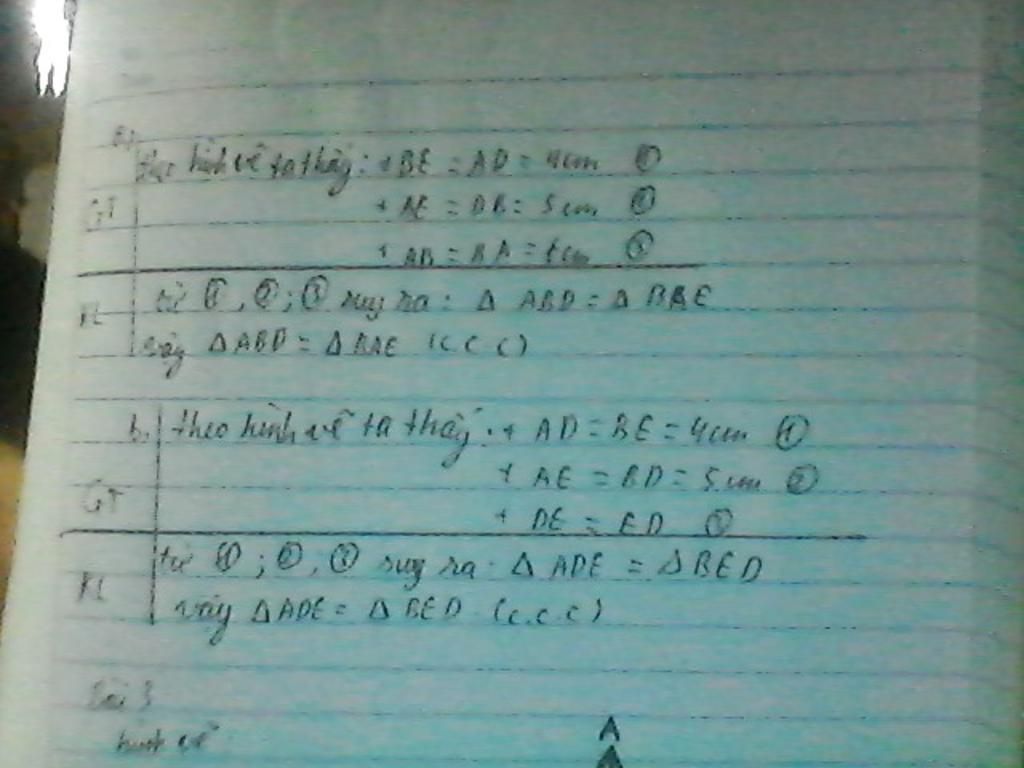 a,
theo hình vẽ ta thấy: + BE = AD = 4cm ①
GT + AE = DB = 5cm ②
+ AB = BA = 6cm ③
KL từ ①, ②; ③ suy ra: Δ ABD = Δ BAE
vậy Δ ABD = Δ BAE (c c c)
b, theo hình vẽ ta thấy: + AD = BE = 4cm ①
+ AE = BD = 5cm ②
GT + DE = ED ③
từ ①; ②, ③ suy ra: Δ ADE = Δ BED
KL vậy Δ ADE = Δ BED (c.c.c)
Bài 3
hình vẽ
A